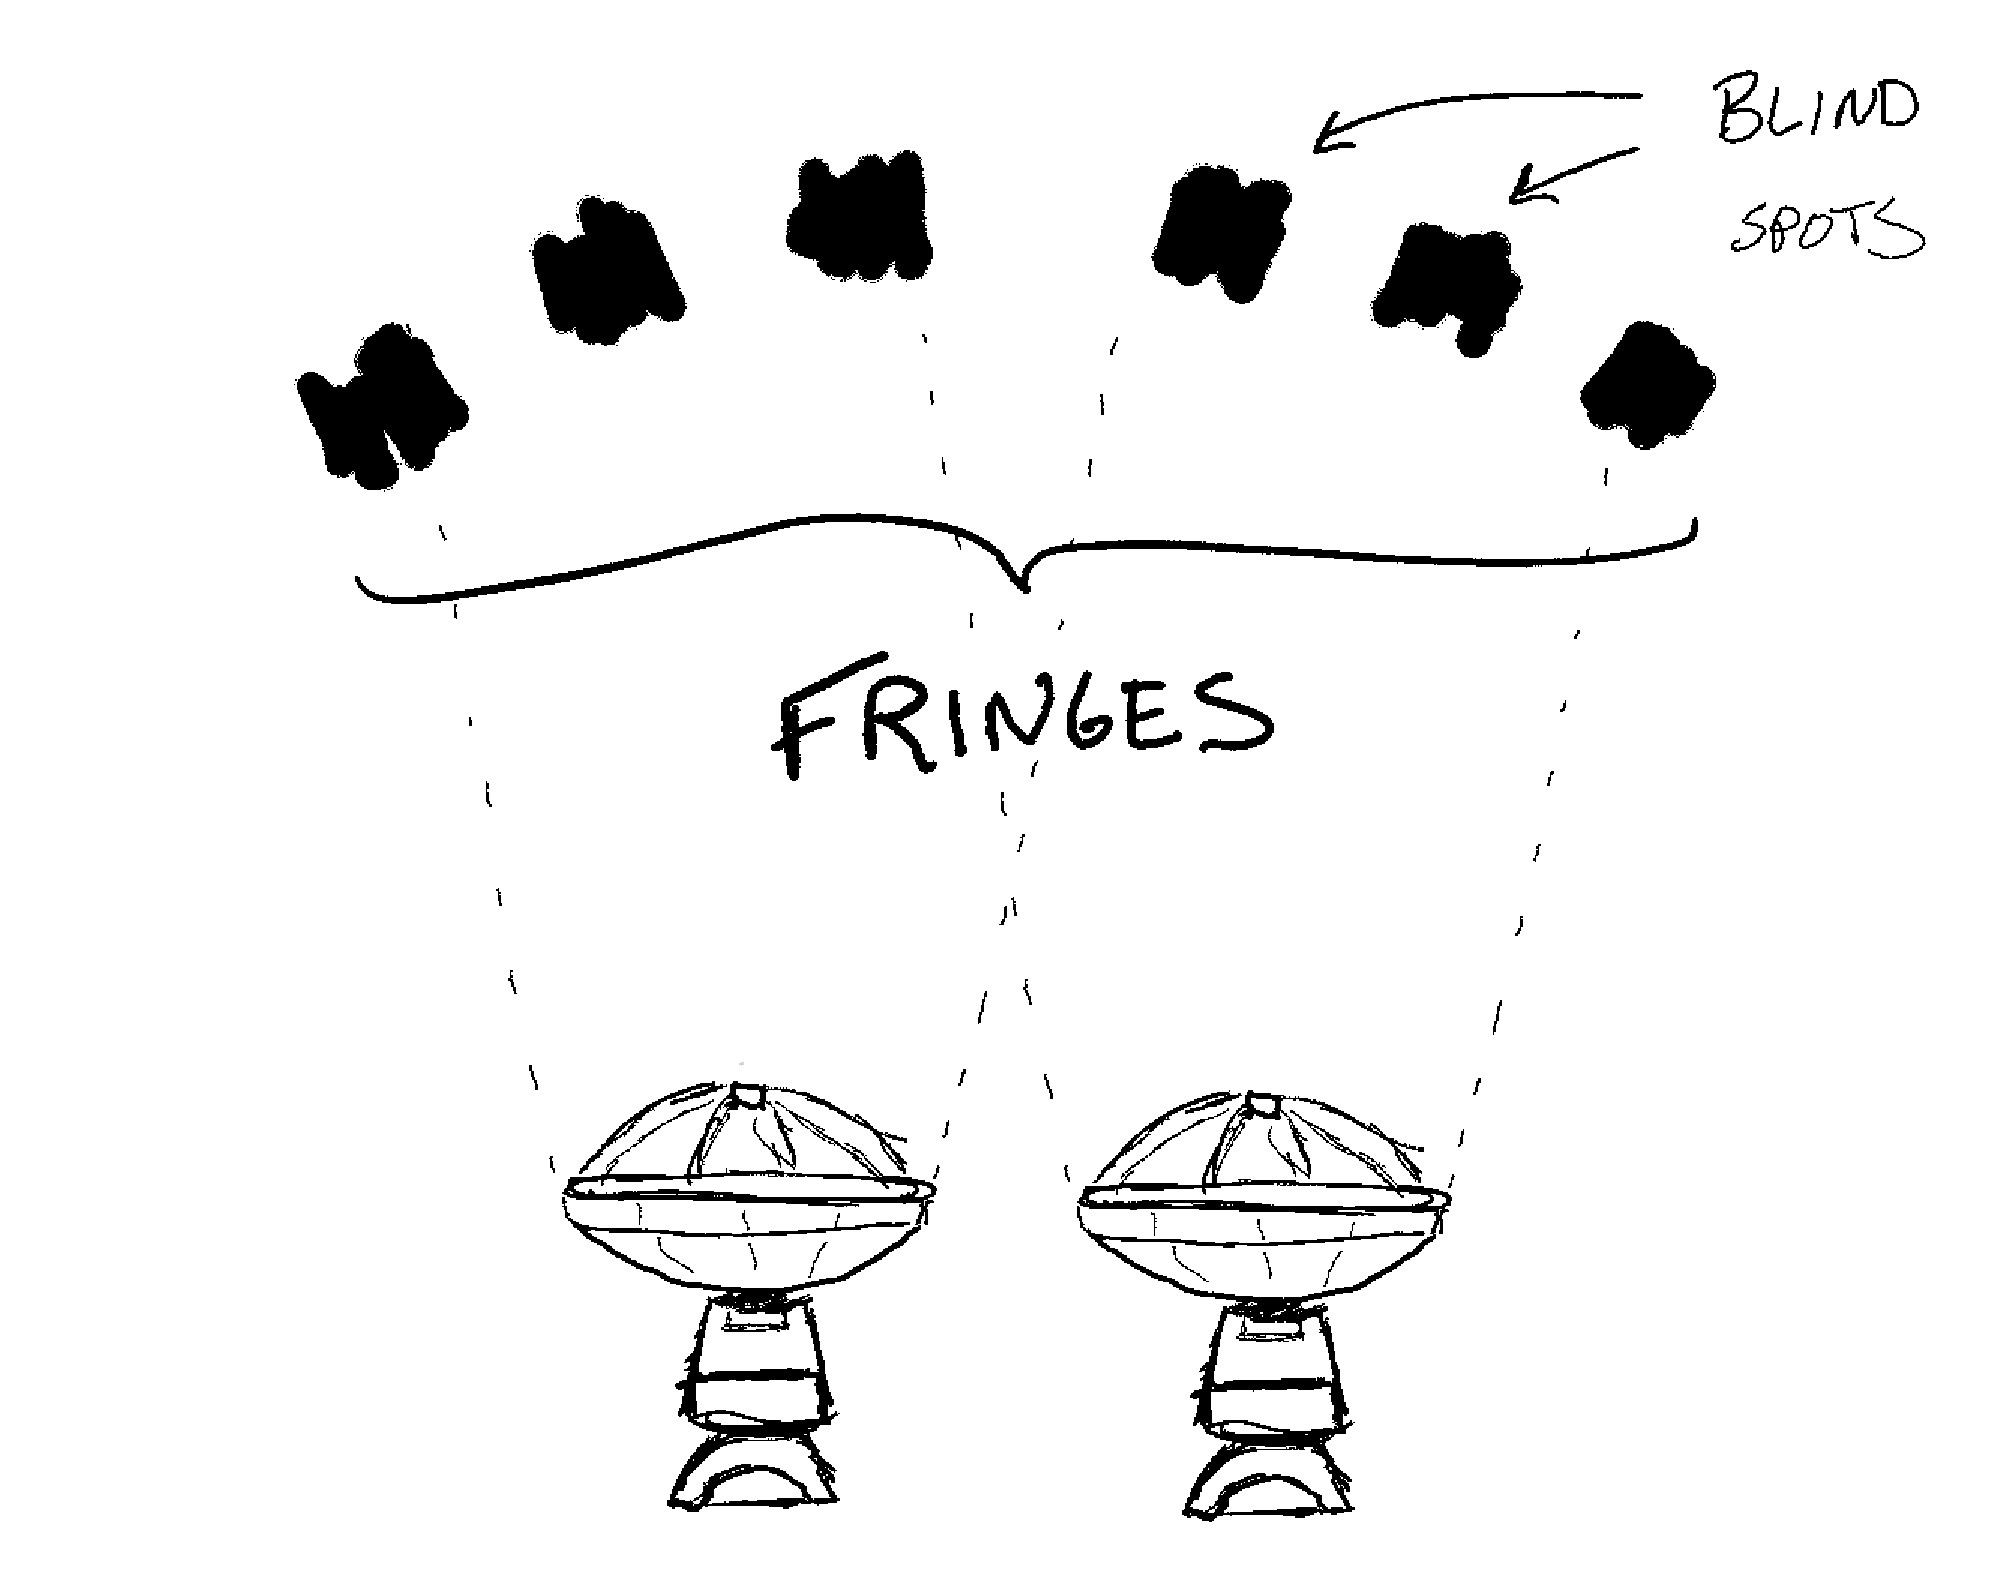 BLIND
SPOTS
FRINGES